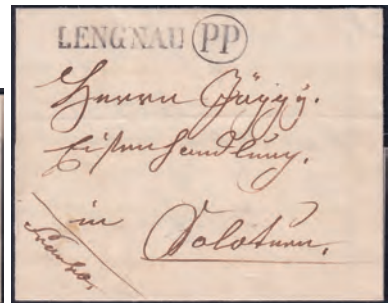 LENGNAU PP
Herrn Jäggy.
Eisenhandlung.
in Soloturn.
Franko